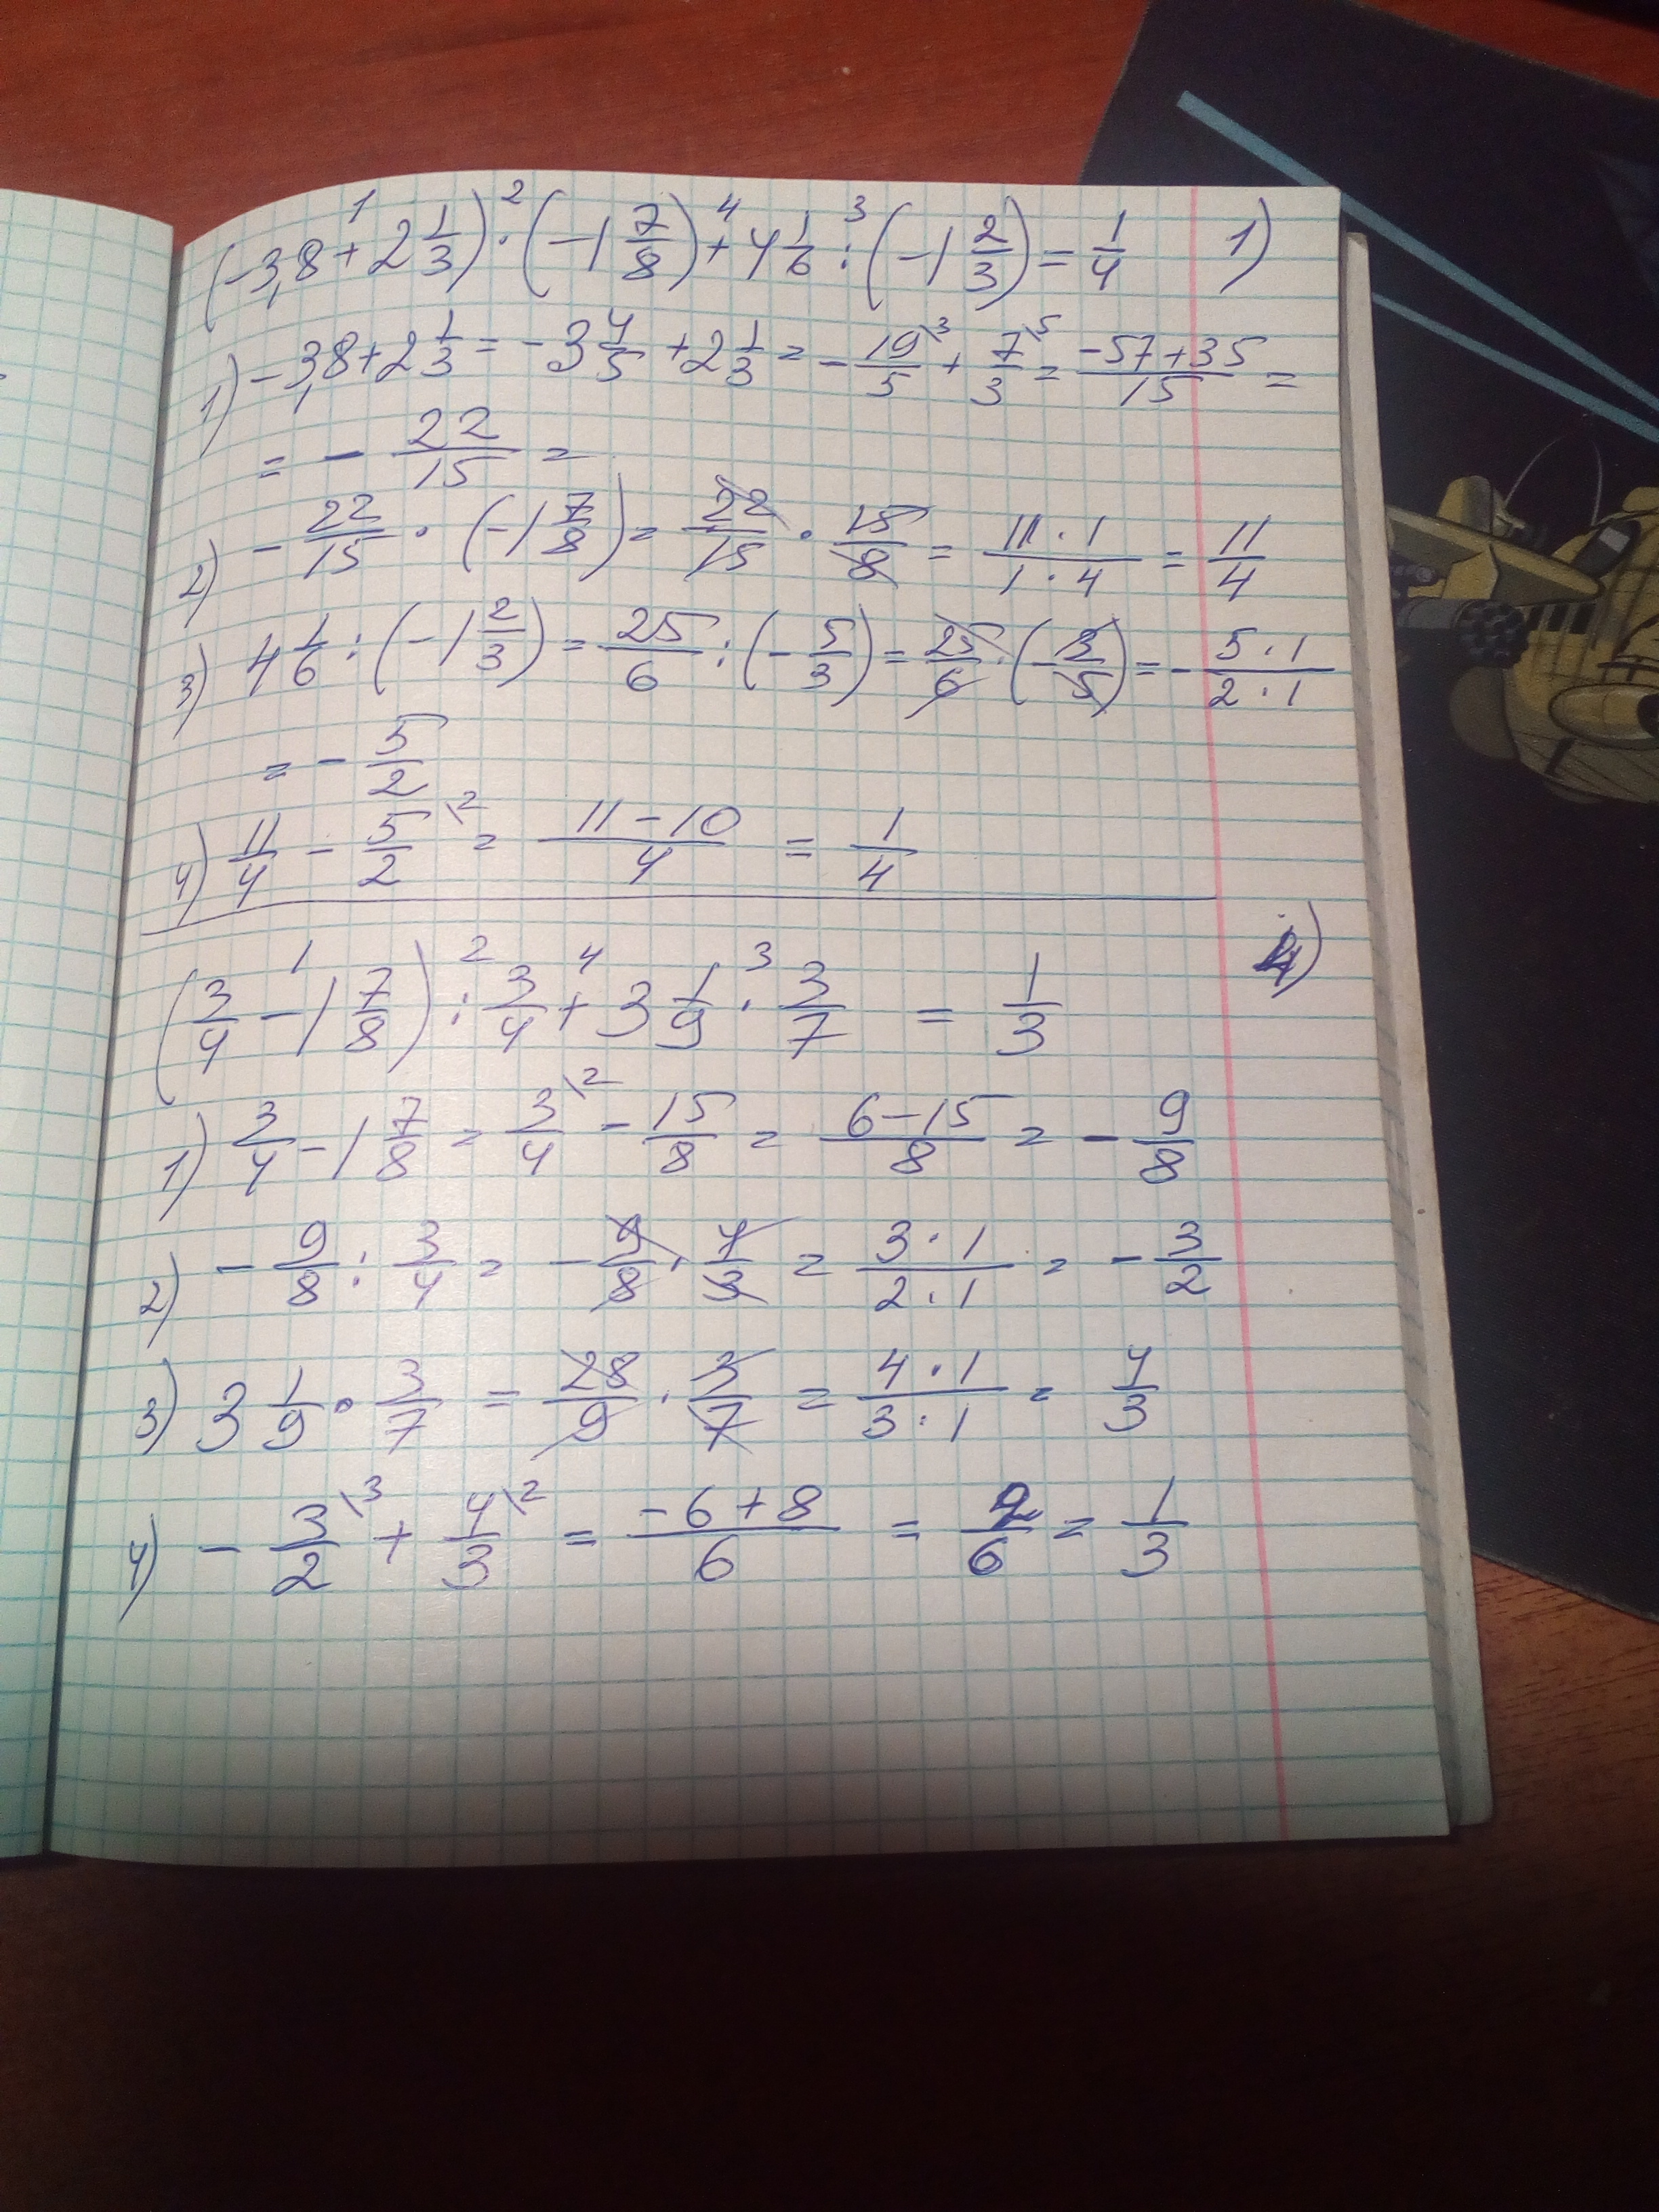 (-3,8 + 2 1/3) · (-1 7/8) + 4 1/6 : (-1 2/3) = 1/4 1)
1) -3,8 + 2 1/3 = -3 4/5 + 2 1/3 = - 19\3/5 + 7\5/3 = -57+35/15 =
= - 22/15 =
2) - 22/15 · (-1 7/8) = 22/15 · 15/8 = 11·1/1·4 = 11/4
3) 4 1/6 : (-1 2/3) = 25/6 : (- 5/3) = 25/6 · (- 3/5) = - 5·1/2·1
= - 5/2
4) 11/4 - 5\2/2 = 11-10/4 = 1/4
(3/4 - 1 7/8) : 3/4 + 3 1/9 · 3/7 = 1/3
1) 3/4 - 1 7/8 = 3\2/4 - 15/8 = 6-15/8 = - 9/8
2) - 9/8 : 3/4 = - 9/8 · 4/3 = 3·1/2·1 = - 3/2
3) 3 1/9 · 3/7 = 28/9 · 3/7 = 4·1/3·1 = 4/3
4) - 3\3/2 + 4\2/3 = -6+8/6 = 2/6 = 1/3